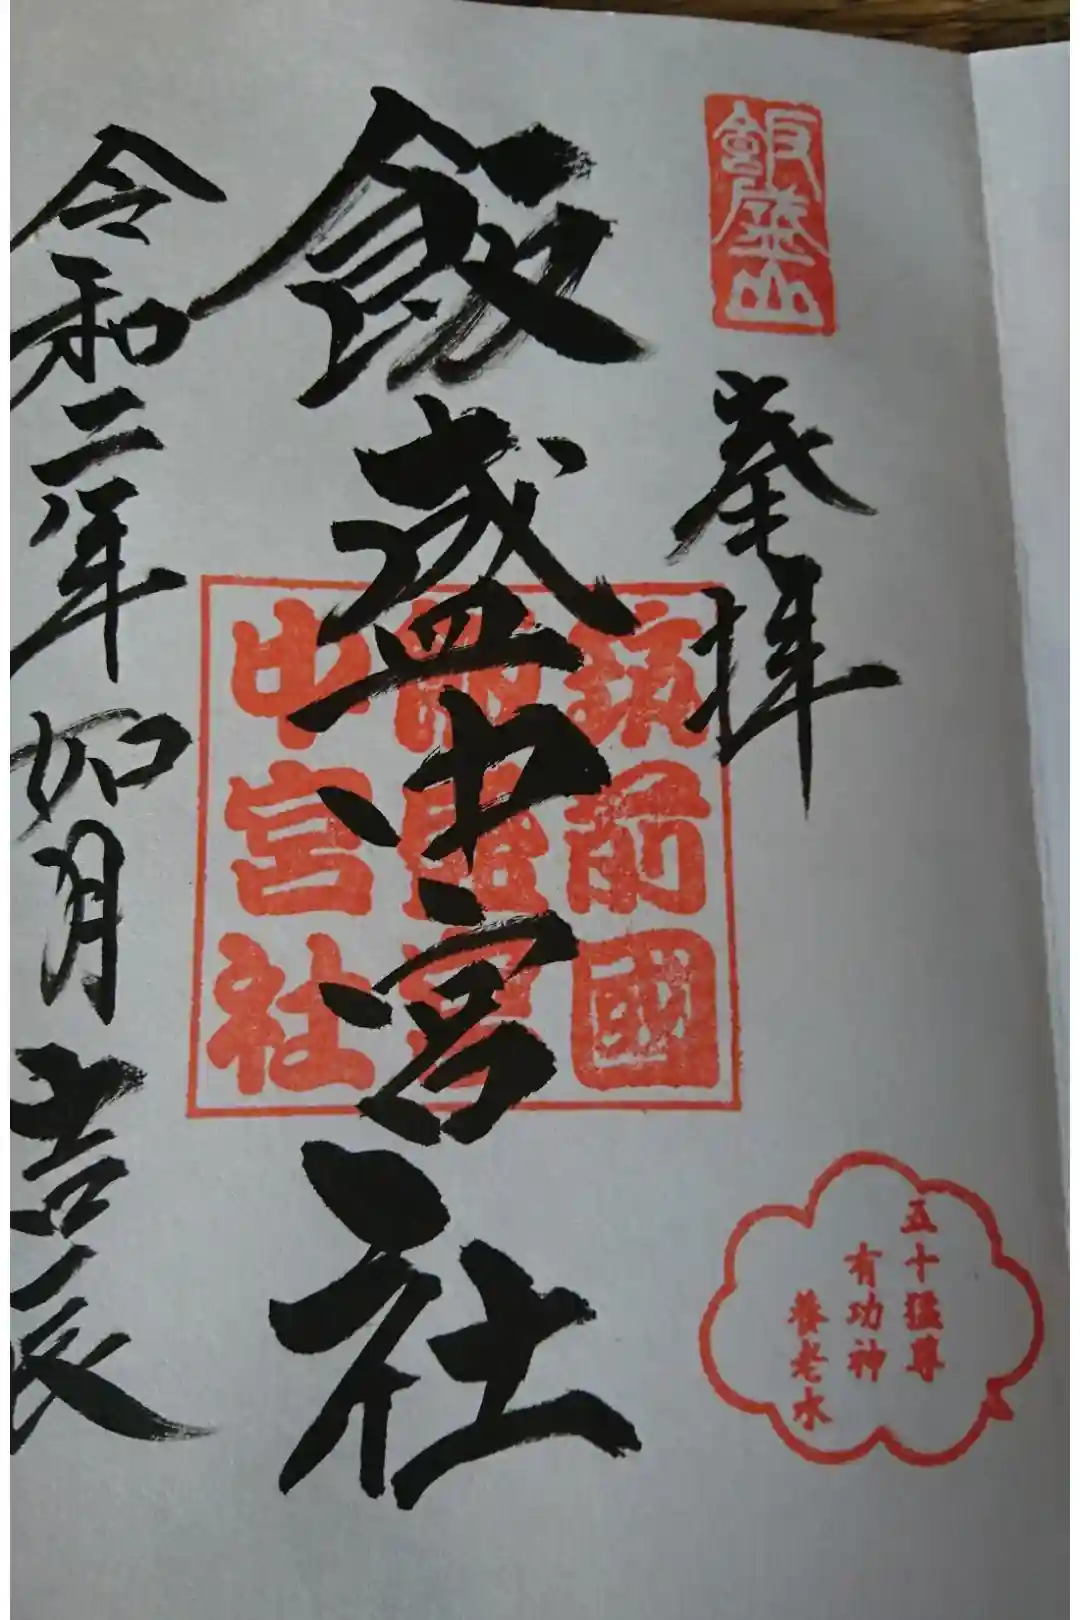 飯盛山
奉拝
五十猛尊
有功神
養老水
飯盛中宮社
筑前國
飯盛宮
中宮社
令和二年如月吉辰